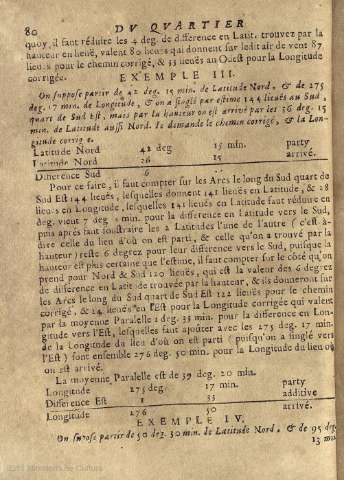 80 DU QUARTIER
quoy, il faut réduire les 4 deg. de différence en Latit. trouvez par la
hauteur en lieuë, valent 80 lieuës qui donnent sur ledit air de vent 87
lieuës pour le chemin corrigé, & 33 lieuës au Ouest pour la Longitude
corrigée.
EXEMPLE III.
On suppose partir de 42 deg. 15 min. de Latitude Nord, & de 275
deg. 17 min. de Longitude, & on a singlé par estime 144 lieuës au Sud,
quart de Sud Est, mais par la hauteur on est arrivé par les 36 deg. 15
min. de Latitude aussi Nord. Je demande le chemin corrigé, & la Lon-
gitude corrigée.
Latitude Nord 42 deg 15 min. party
Latitude Nord 36 15 arrivé.
Difference Sud 6
Pour ce faire, il faut compter sur les Arcs le long du Sud quart de
Sud Est 144 lieuës, lesquelles donnent 141 lieuës en Latitude, & 28
lieuës en Longitude, lesquelles 141 lieuës en Latitude faut réduire en
deg. vient 7 deg. min. pour la difference en Latitude vers le Sud,
puis aprés faut soustraire les 2 Latitudes l'une de l'autre (c'est à-
dire celle du lieu d'où on est parti, & celle qu'on a trouvé par la
hauteur) reste 6 degrez pour leur difference vers le Sud, puisque la
hauteur est plus certaine que l'estime, il faut compter sur le côté qu'on
prend pour Nord & Sud 120 lieuës, qui est la valeur des 6 degrez
de difference en Latitude trouvée par la hauteur, & ils donneront sur
les Arcs le long du Sud quart de Sud Est 122 lieuës pour le chemin
corrigé, & 24 lieuës en l'Est pour la Longitude corrigée qui valent
par la moyenne Paralelle 1 deg. 33 min. pour la difference en Lon-
gitude vers l'Est, lesquelles faut ajoûter avec les 275 deg. 17 min.
de la Longitude du lieu d'où on est parti (puisqu'on a singlé vers
l'Est) font ensemble 276 deg. 50 min. pour la Longitude du lieu où
on est arrivé.
La moyenne Paralelle est de 39 deg. 20 min.
Longitude 275 deg. 17 min. party
Difference Est 1 33 additive
Longitude 276 50 arrivé.
EXEMPLE IV.
On supose partir de 50 deg. 30 min. de Latitude Nord, & de 95 deg.
13 min.